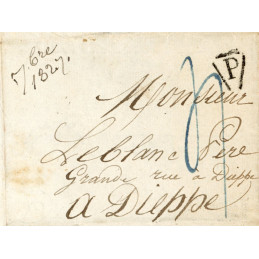 7/bre
1827.
P
Monsieur
Leblanc Père
Grande rue a Dieppe
a Dieppe